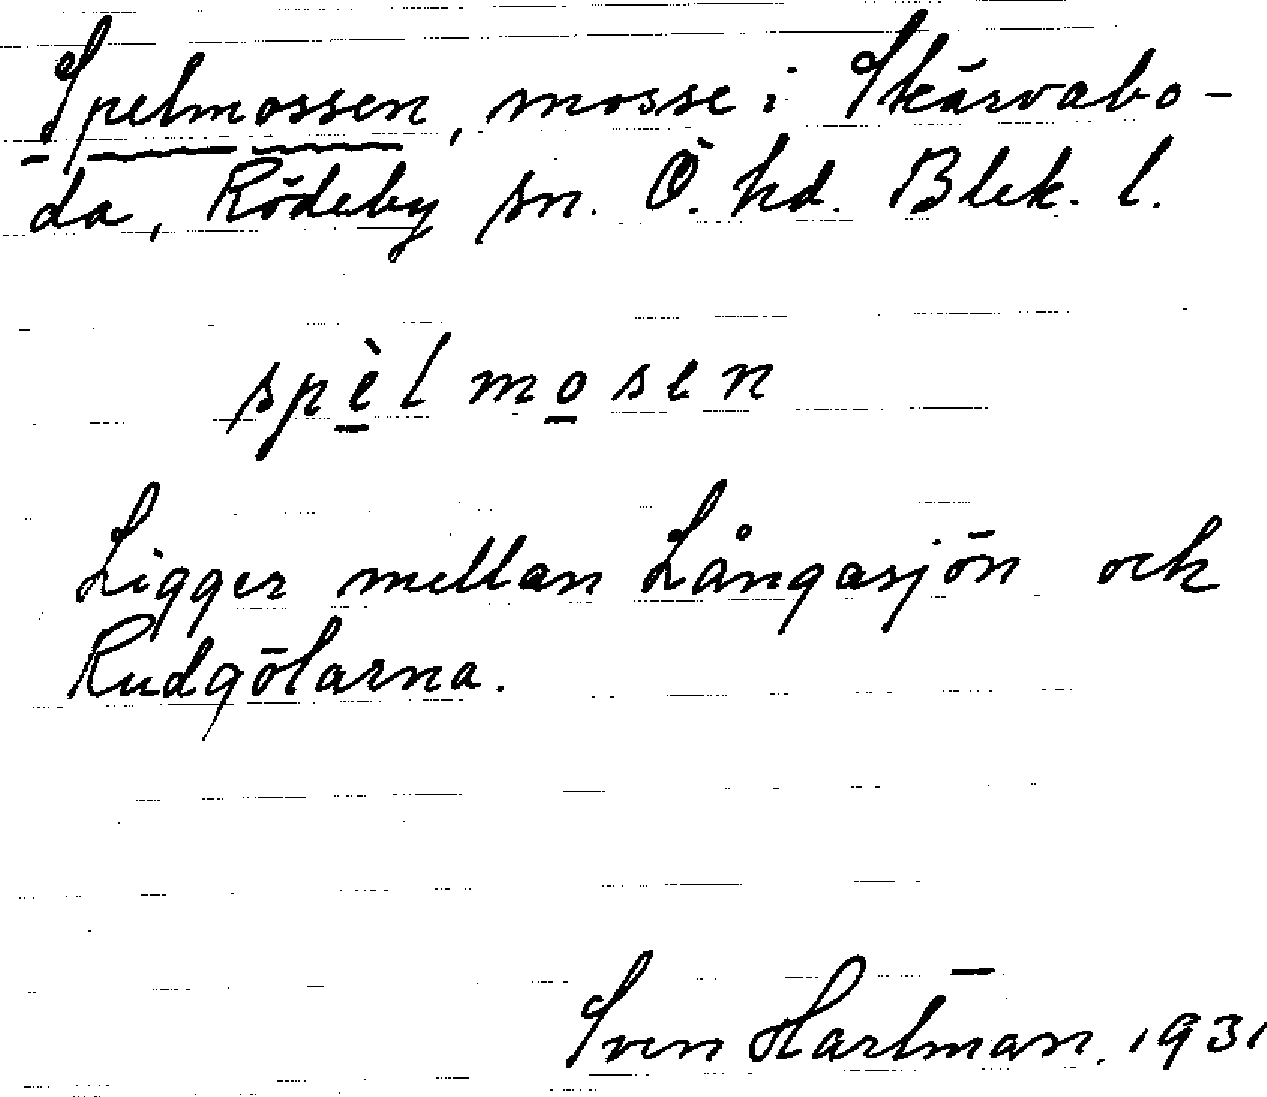 Spelmossen, mosse i Skärvabo-
da, Rödeby sn. Ö. hd. Blek. l.
spèl mosen
Ligger mellan Långasjön och
Rudgölarna.
Sven Hartman. 1931